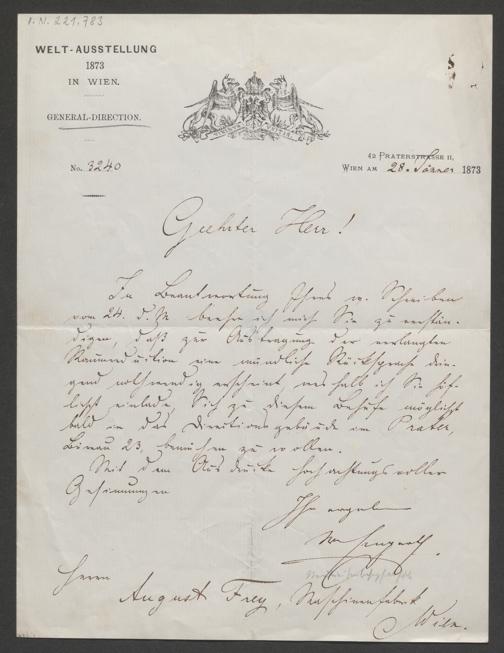 I.N. 221.783
WELT-AUSSTELLUNG
1873
IN WIEN.
GENERAL-DIRECTION.
No. 3240
42 PRATERSTRASSE II.
WIEN AM 28. Jänner 1873
Geehrter Herr!
In Beantwortung Ihres w. Schreiben
vom 24. d. M. beehre ich mich Sie zu verstän-
digen, daß zur Austragung der verlangten
Raumreduction eine mündliche Rücksprache drin-
gend nothwendig erscheint, weshalb ich Sie höf-
lichst einlade, Sich zu diesem Behufe möglichst
bald in das Directionsgebäude im Prater,
Bureau 23, bemühen zu wollen.
Mit dem Ausdrucke hochachtungsvoller
Gesinnungen
Ihr
Herrn
August Frey, Maschinenfabrik
Wien.